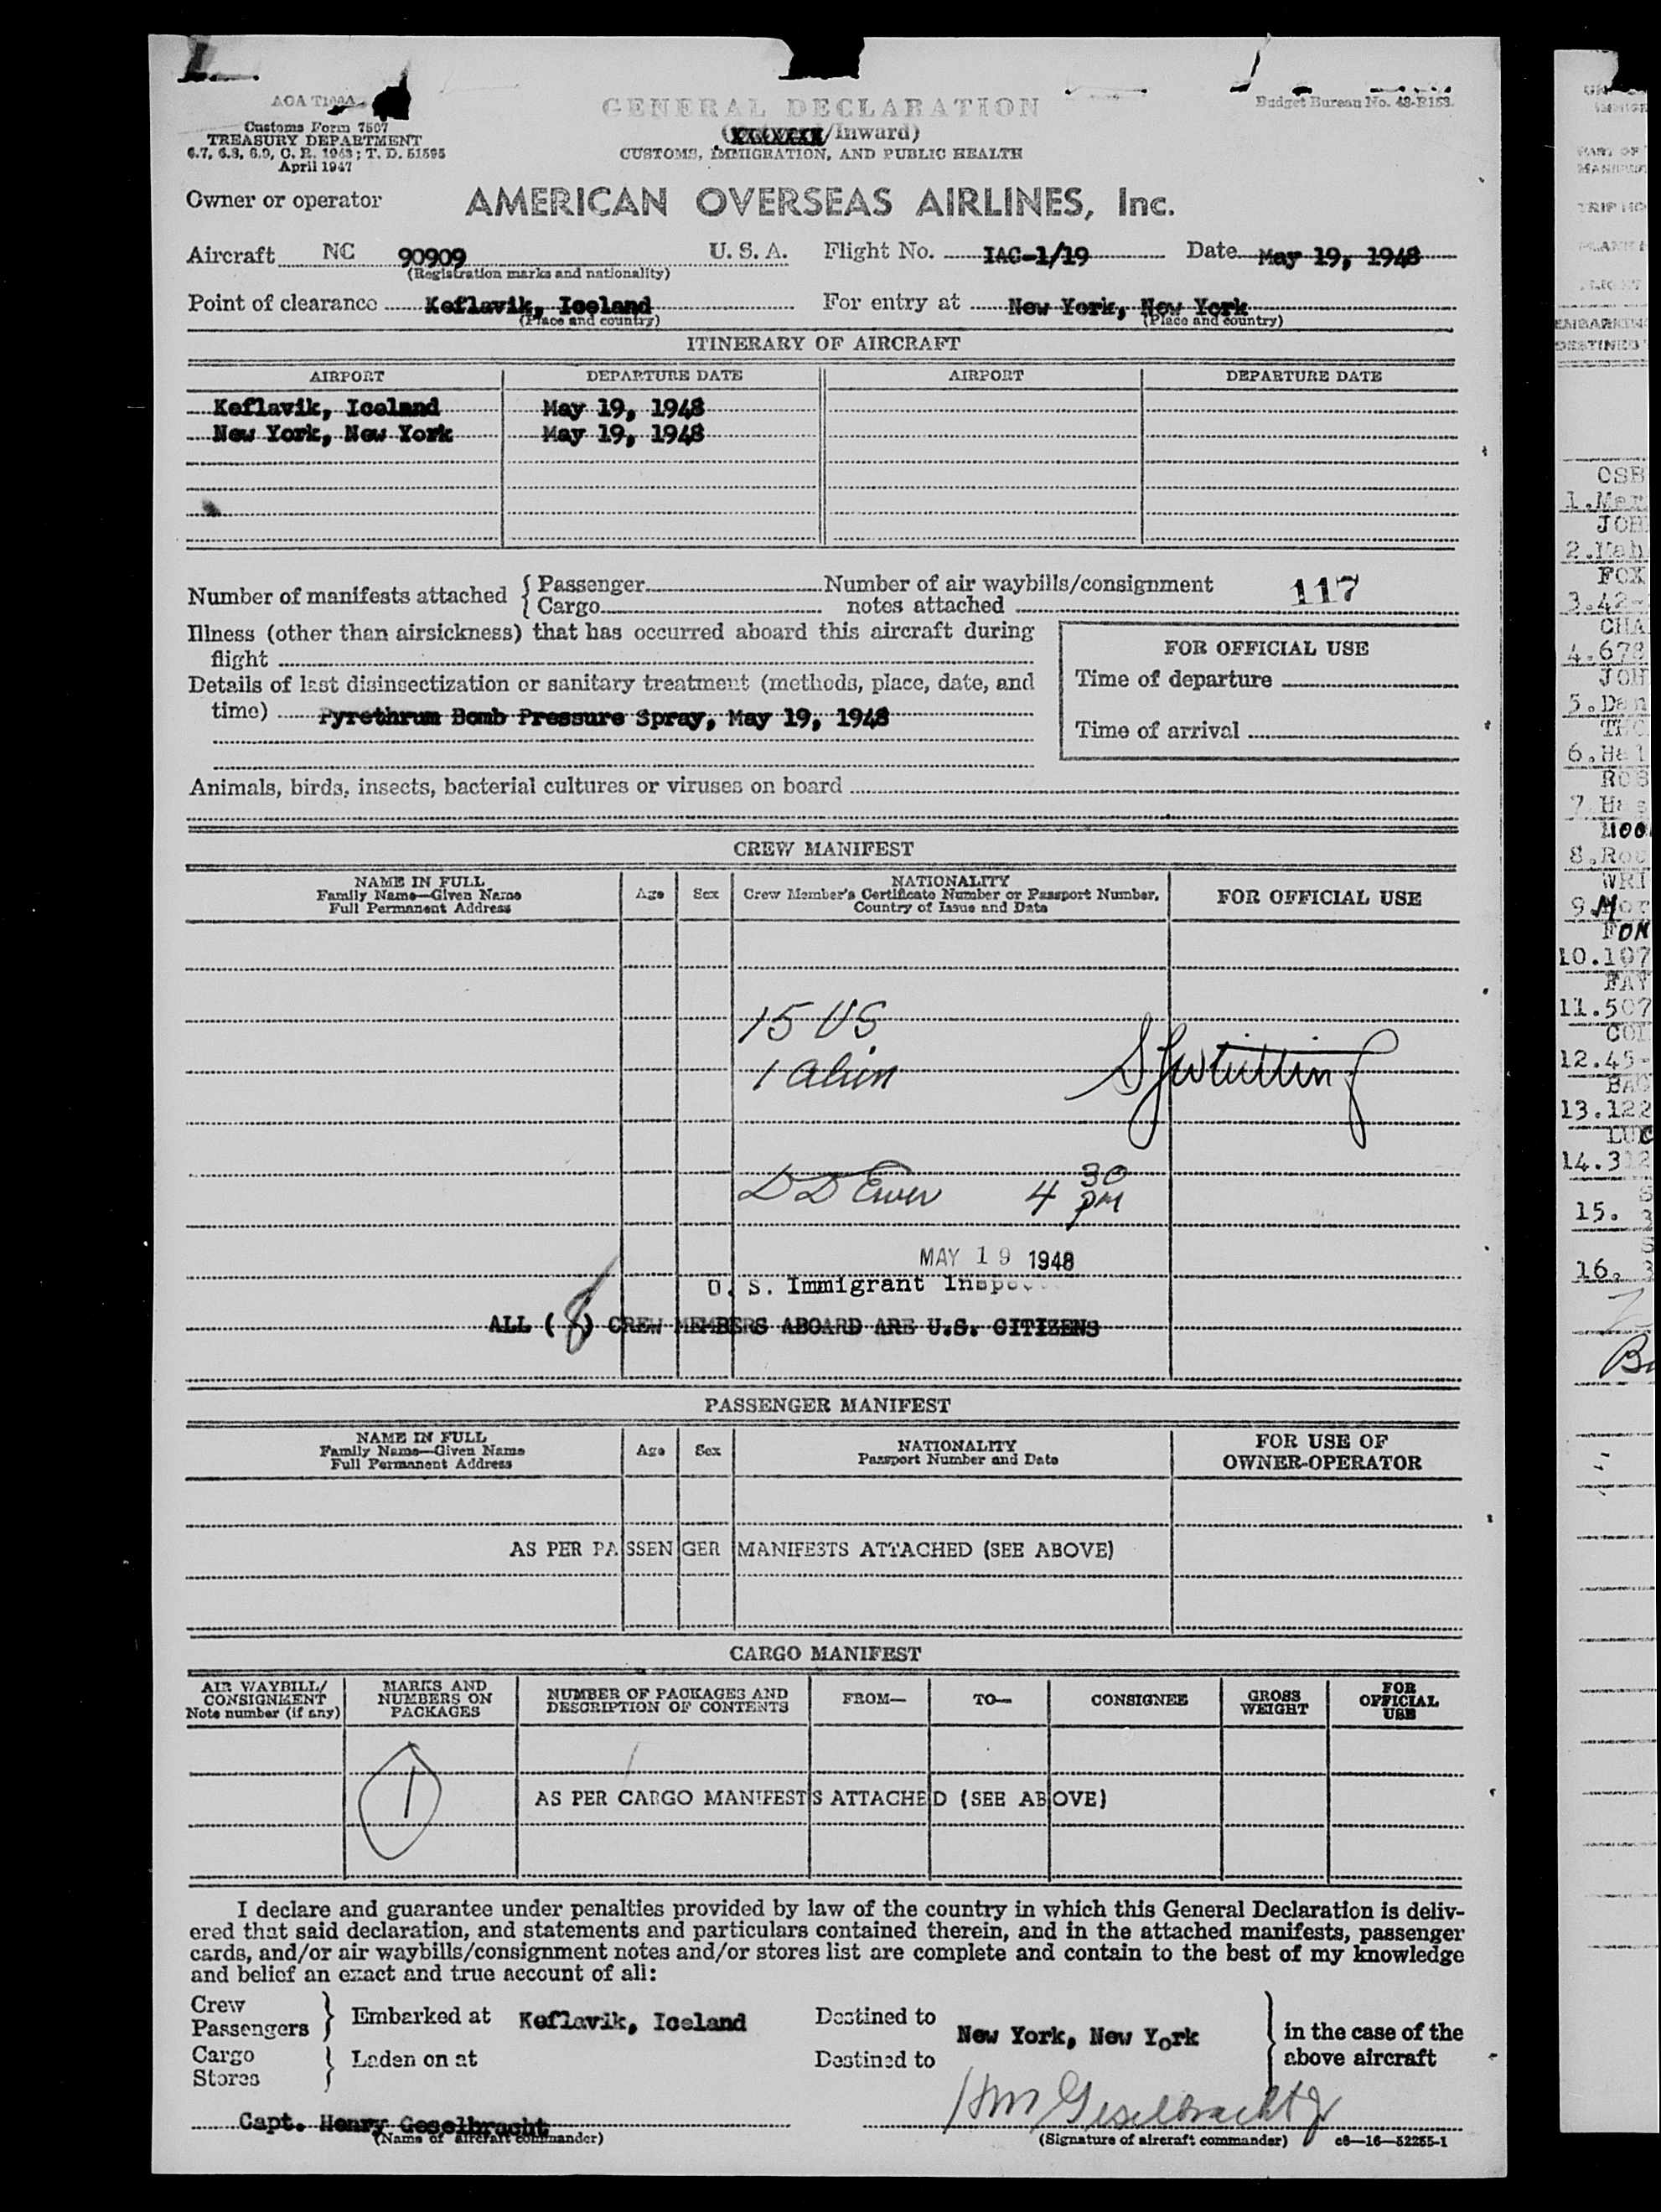 AOA T100A
Customs Form 7507
TREASURY DEPARTMENT
6.7, 6.8, 6.9, C. R. 1943; T. D. 51595
April 1947
GENERAL DECLARATION
/Inward)
CUSTOMS, IMMIGRATION, AND PUBLIC HEALTH
Budget Bureau No. 48-R153.
Owner or operator AMERICAN OVERSEAS AIRLINES, Inc.
Aircraft NC 90909 U. S. A. Flight No. IAC-1/19 Date May 19, 1948
(Registration marks and nationality)
Point of clearance Keflavik, Iceland For entry at New York, New York
(Place and country) (Place and country)
ITINERARY OF AIRCRAFT
AIRPORT DEPARTURE DATE AIRPORT DEPARTURE DATE
Keflavik, Iceland May 19, 1948
New York, New York May 19, 1948
Number of manifests attached { Passenger Number of air waybills/consignment 117
Cargo notes attached
Illness (other than airsickness) that has occurred aboard this aircraft during
flight
Details of last disinsectization or sanitary treatment (methods, place, date, and
time) Pyrethrum Bomb Pressure Spray, May 19, 1948
FOR OFFICIAL USE
Time of departure
Time of arrival
Animals, birds, insects, bacterial cultures or viruses on board
CREW MANIFEST
NAME IN FULL
Family Name—Given Name
Full Permanent Address
Age Sex
NATIONALITY
Crew Member's Certificate Number or Passport Number,
Country of Issue and Date
FOR OFFICIAL USE
15 US
1 alien
4 30 pm
MAY 19 1948
U. S. Immigrant Inspec
ALL (8) CREW MEMBERS ABOARD ARE U.S. CITIZENS
PASSENGER MANIFEST
NAME IN FULL
Family Name—Given Name
Full Permanent Address
Age Sex
NATIONALITY
Passport Number and Date
FOR USE OF
OWNER-OPERATOR
AS PER PASSENGER MANIFESTS ATTACHED (SEE ABOVE)
CARGO MANIFEST
AIR WAYBILL/
CONSIGNMENT
Note number (if any)
MARKS AND
NUMBERS ON
PACKAGES
NUMBER OF PACKAGES AND
DESCRIPTION OF CONTENTS
FROM—
TO—
CONSIGNEE
GROSS
WEIGHT
FOR
OFFICIAL
USE
1
AS PER CARGO MANIFESTS ATTACHED (SEE ABOVE)
I declare and guarantee under penalties provided by law of the country in which this General Declaration is deliv-
ered that said declaration, and statements and particulars contained therein, and in the attached manifests, passenger
cards, and/or air waybills/consignment notes and/or stores list are complete and contain to the best of my knowledge
and belief an exact and true account of all:
Crew
Passengers } Embarked at Keflavik, Iceland Destined to New York, New York } in the case of the
Cargo
Stores } Laden on at Destined to above aircraft
Capt. Henry Geselbracht
(Name of aircraft commander)
HM Geselbracht Jr
(Signature of aircraft commander) c8—16—52255-1
OSB
1.Mar
JOH
2.Mah
FOX
3.42-
CHA
4.678
JOH
5.Dan
6.Hal
ROS
8.Rou
WRI
10.107
FAY
11.507
COL
12.45-
BAC
13.122
14.312
15.
16.